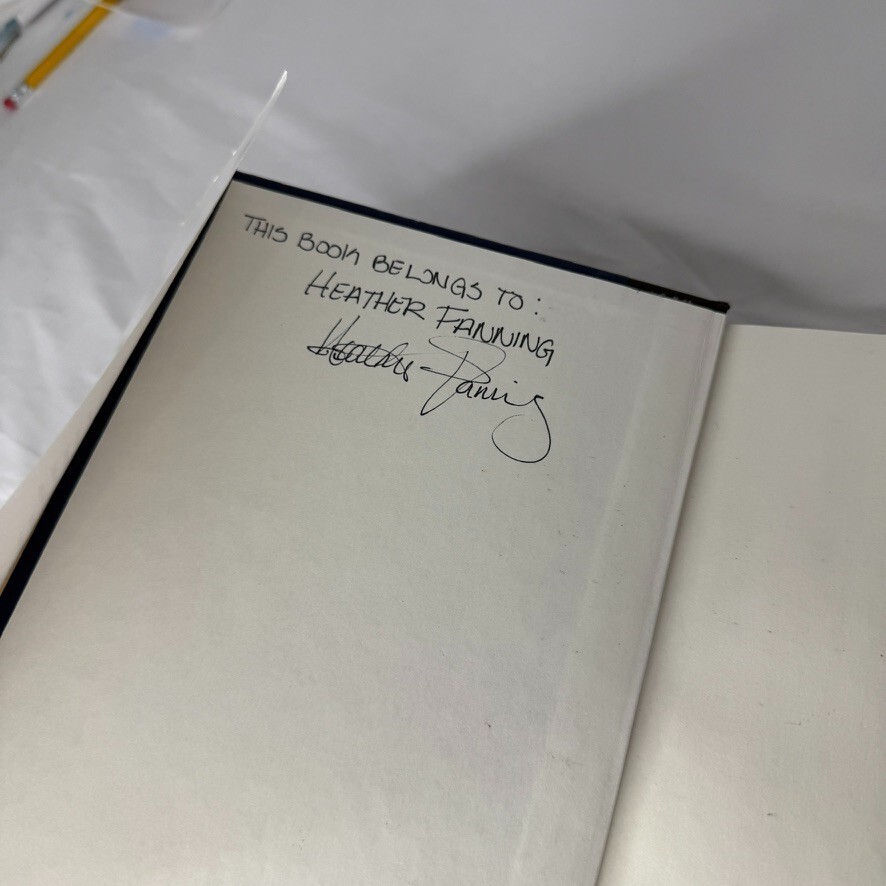 THIS BOOK BELONGS TO:
HEATHER FANNING
Heather Fanning